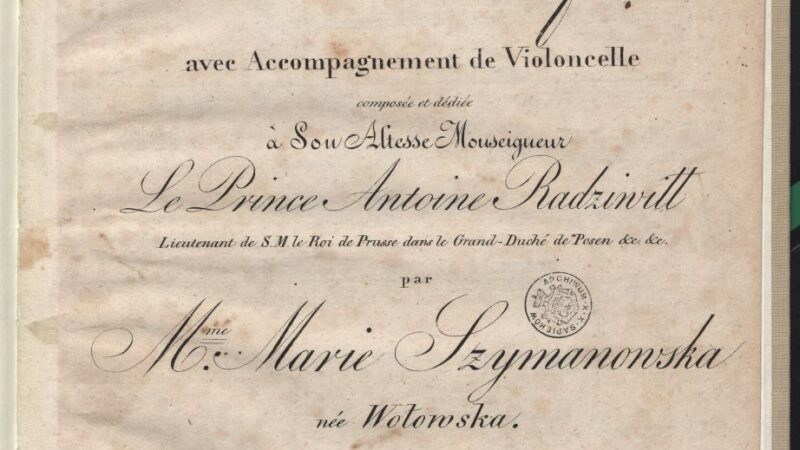 avec Accompagnement de Violoncelle
composée et dédiée
à Son Altesse Monseigneur
Le Prince Antoine Radziwiłł
Lieutenant de S.M. le Roi de Prusse dans le Grand-Duché de Posen &c. &c.
par
ARCHIWUM X.X. SAPIEHÓW
Mme. Marie Szymanowska
née Wołowska.